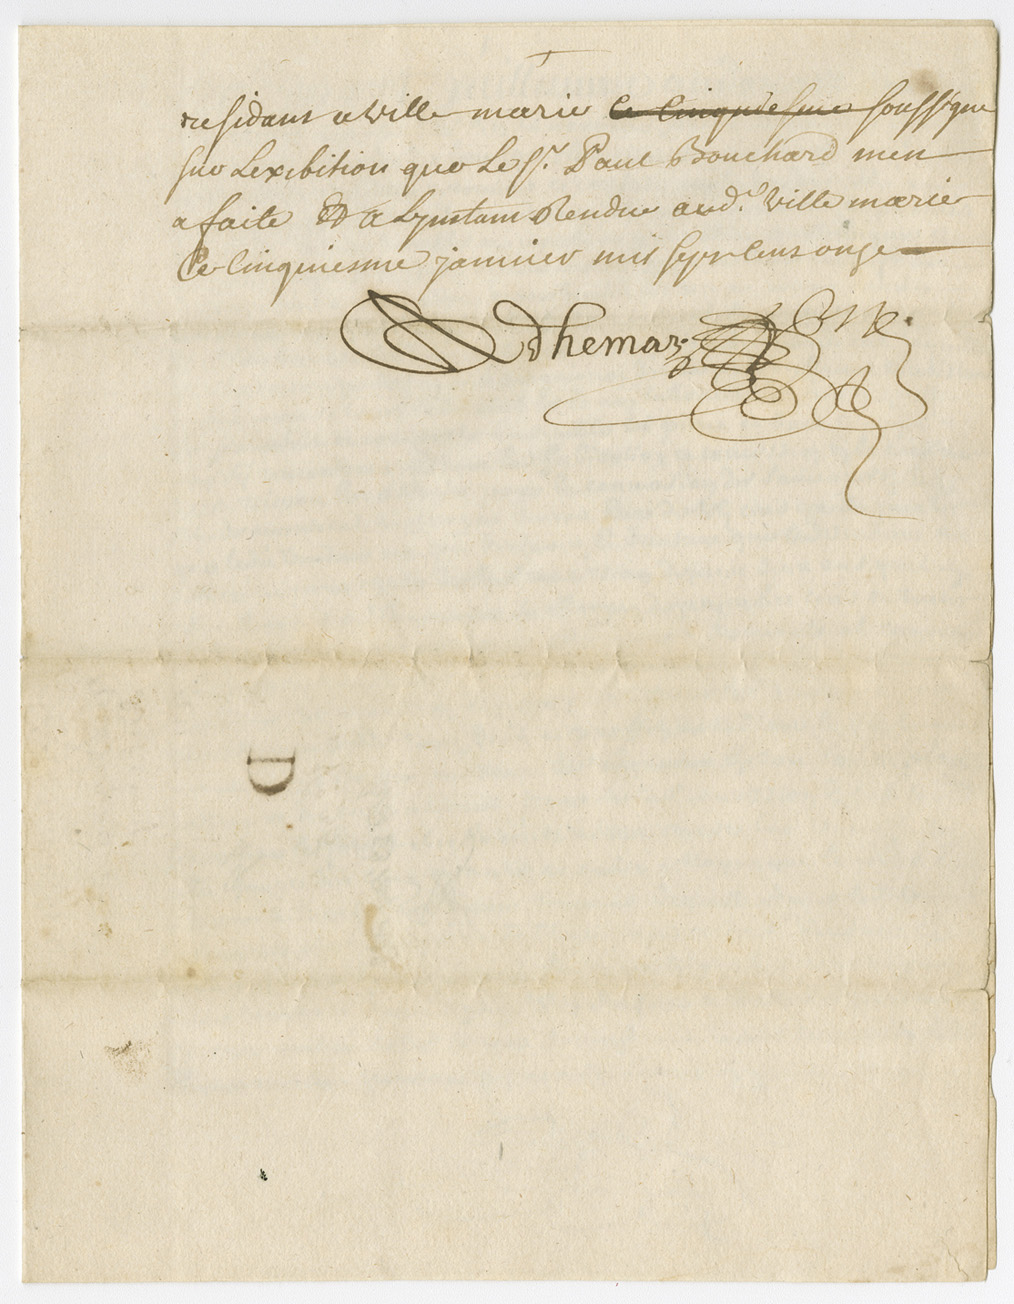 residant a Ville marie ce cinquiesme soussigne
sur Lexibition que Le Sr. Paul Bouchard men
a faite Et a Lynstant Rendue aud.t Ville marie
Ce Cinquiesme janvier mil sept cens onze
Adhemar
D